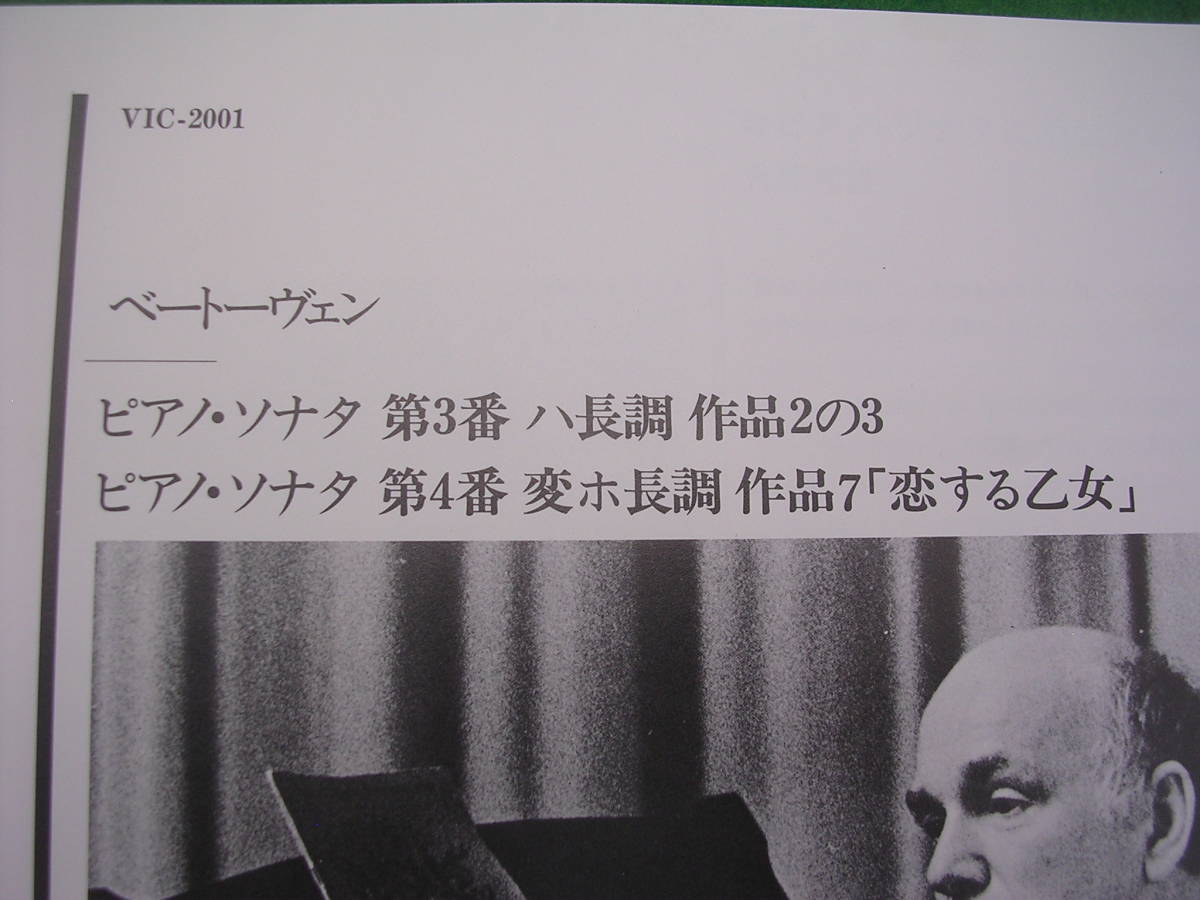 VIC-2001
ベートーヴェン
ピアノ・ソナタ 第3番 ハ長調 作品2の3
ピアノ・ソナタ 第4番 変ホ長調 作品7「恋する乙女」